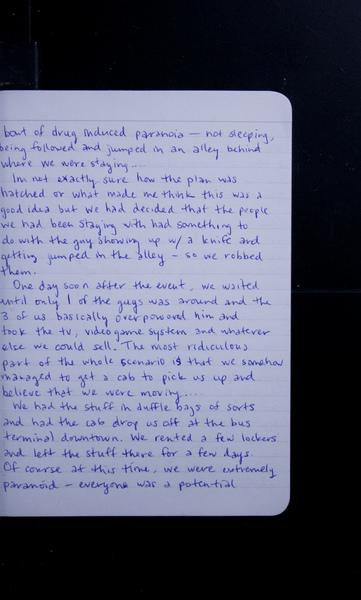 bout of drug induced paranoia — not sleeping,
being followed and jumped in an alley behind
where we were staying....
Im not exactly sure how the plan was
hatched or what made me think this was a
good idea but we had decided that the people
we had been staying with had something to
do with the guy showing up w/ a knife and
getting jumped in the alley - so we robbed
them.
One day soon after the event, we waited
until only 1 of the guys was around and the
3 of us basically overpowered him and
took the tv, video game system and whatever
else we could sell. The most ridiculous
part of the whole scenario is that we somehow
managed to get a cab to pick us up and
believe that we were moving....
We had the stuff in duffle bags of sorts
and had the cab drop us off at the bus
terminal downtown. We rented a few lockers
and left the stuff there for a few days.
Of course at this time, we were extremely
paranoid - everyone was a potential